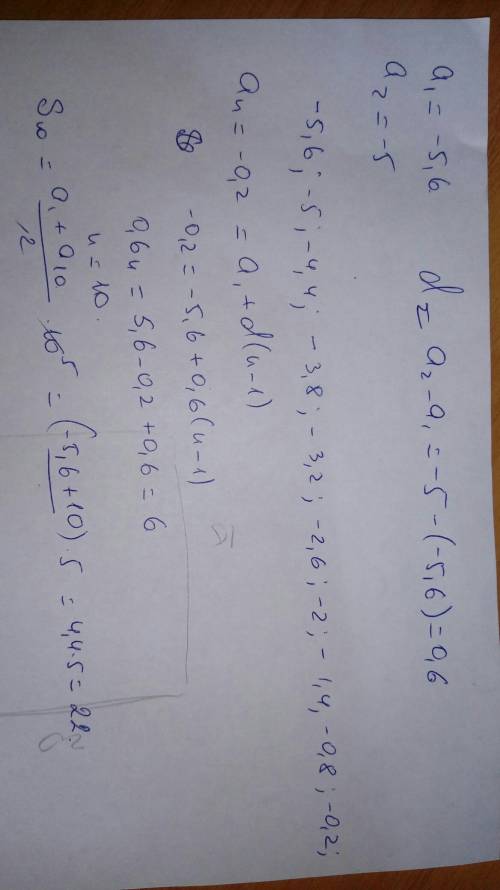 a₁ = -5,6 d = a₂ - a₁ = -5 - (-5,6) = 0,6
a₂ = -5
-5,6; -5; -4,4; -3,8; -3,2; -2,6; -2; -1,4; -0,8; -0,2;
aₙ = -0,2 = a₁ + d(n-1)
-0,2 = -5,6 + 0,6(n-1)
0,6n = 5,6 - 0,2 + 0,6 = 6
n = 10.
S₁₀ = (a₁ + a₁₀)/2 · 10 5 = (-5,6 + 10) · 5 = 4,4 · 5 = 22